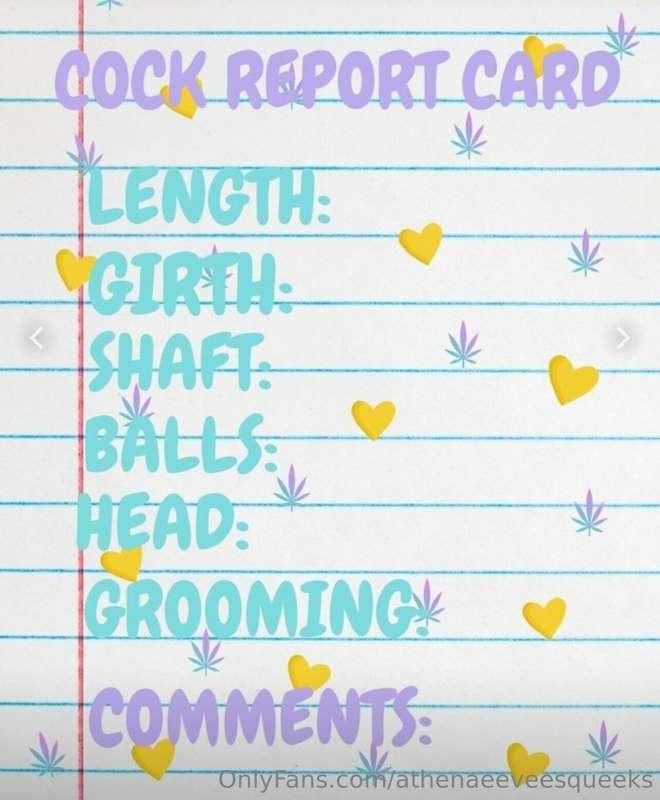 COCK REPORT CARD
LENGTH:
GIRTH:
SHAFT:
BALLS:
HEAD:
GROOMING:
COMMENTS:
OnlyFans.com/athenaeeveesqueeks